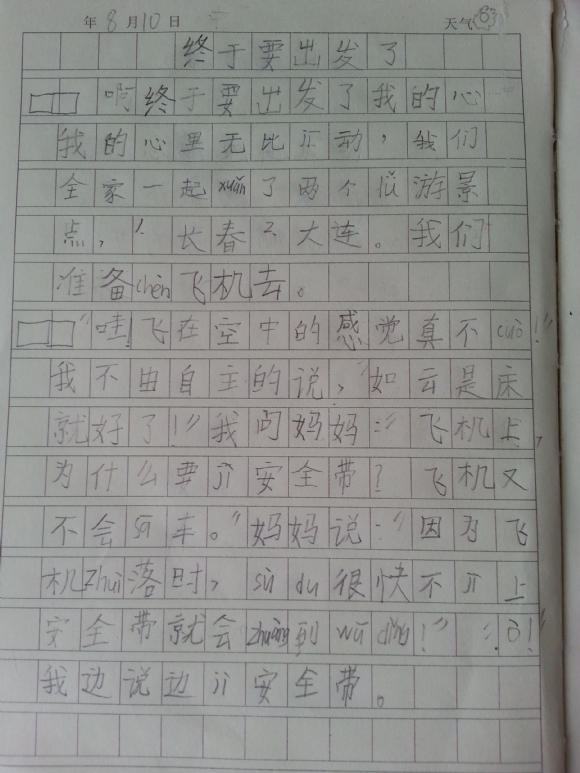 年8月10日 天气
终于要出发了
啊终于要出发了我的心
我的心里无比jī动，我们
全家一起xuǎn了两个lǚ游景
点，1、长春2、大连。我们
准备chèn飞机去。
“哇！飞在空中的感觉真不cuò！”
我不由自主的说，“如云是床
就好了！”我问妈妈：“飞机上，
为什么要jì安全带？飞机又
不会sā车。”妈妈说：“因为飞
机zhuì落时，sù du很快不jì上
安全带就会zhuàng到wū dǐng！”：“ò！”
我边说边jì安全带。